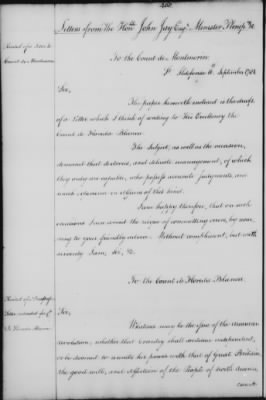 Letters from the Honble John Jay Esqr. Minister Plenipo. &c
To the Count de Montmorin
St. Ildefonso 11th September 1781
Sir,
The paper herewith enclosed is the draft
of a Letter which I think of writing to His Excellency the
Count de Florida Blanca.
The subject, as well as the occasion,
demand that delicate management, of which
they only are capable, who possess accurate judgments, and
much experience in affairs of this kind.
I am happy therefore, that on such
occasions I can avoid the risque of committing errors, by
to your friendly advice. Without compliment, but with
sincerity I am, &c, &c.
To the Count de Florida Blanca
Sir,
Whatever may be the issue of the American
revolution, whether that Country shall continue independent,
or be doomed to reunite her power with that of Great Britain,
the good will, and affection of the People of North America
cannot